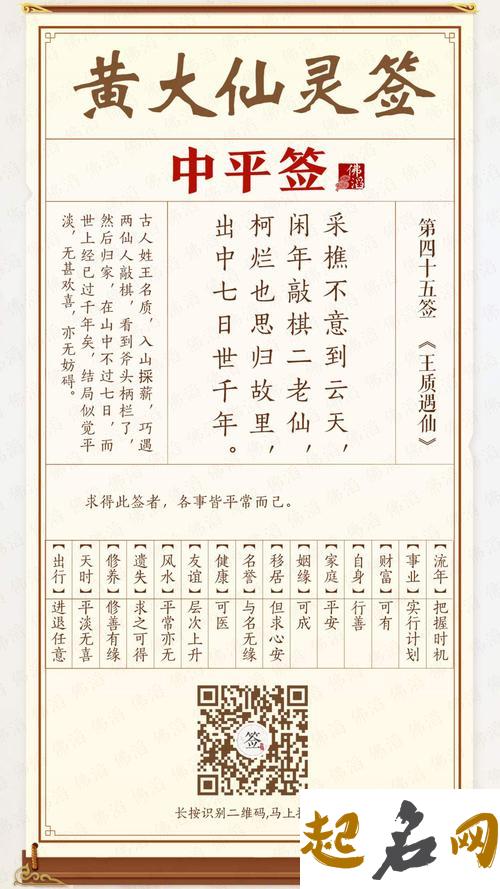 黄大仙灵签
中平签
佛滔
第四十五签 《王质遇仙》
采樵不意到云天，
闲年敲棋二老仙，
柯烂也思归故里，
出中七日世千年。
古人姓王名质，入山採薪，巧遇
两仙人敲棋，看到斧头柄栏了，
然后归家，在山中不过七日，而
世上经已过千年矣，结局似觉平
淡，无甚欢喜，亦无妨碍。
求得此签者，各事皆平常而己。
【流年】把握时机
【事业】实行计划
【财富】可有
【自身】行善
【家庭】平安
【姻缘】可成
【移居】但求心安
【名誉】与名无缘
【健康】可医
【友谊】层次上升
【风水】平常亦无
【遗失】求之可得
【修养】修善有缘
【天时】平淡无喜
【出行】进退任意
签
长按识别二维码,马上
起名网